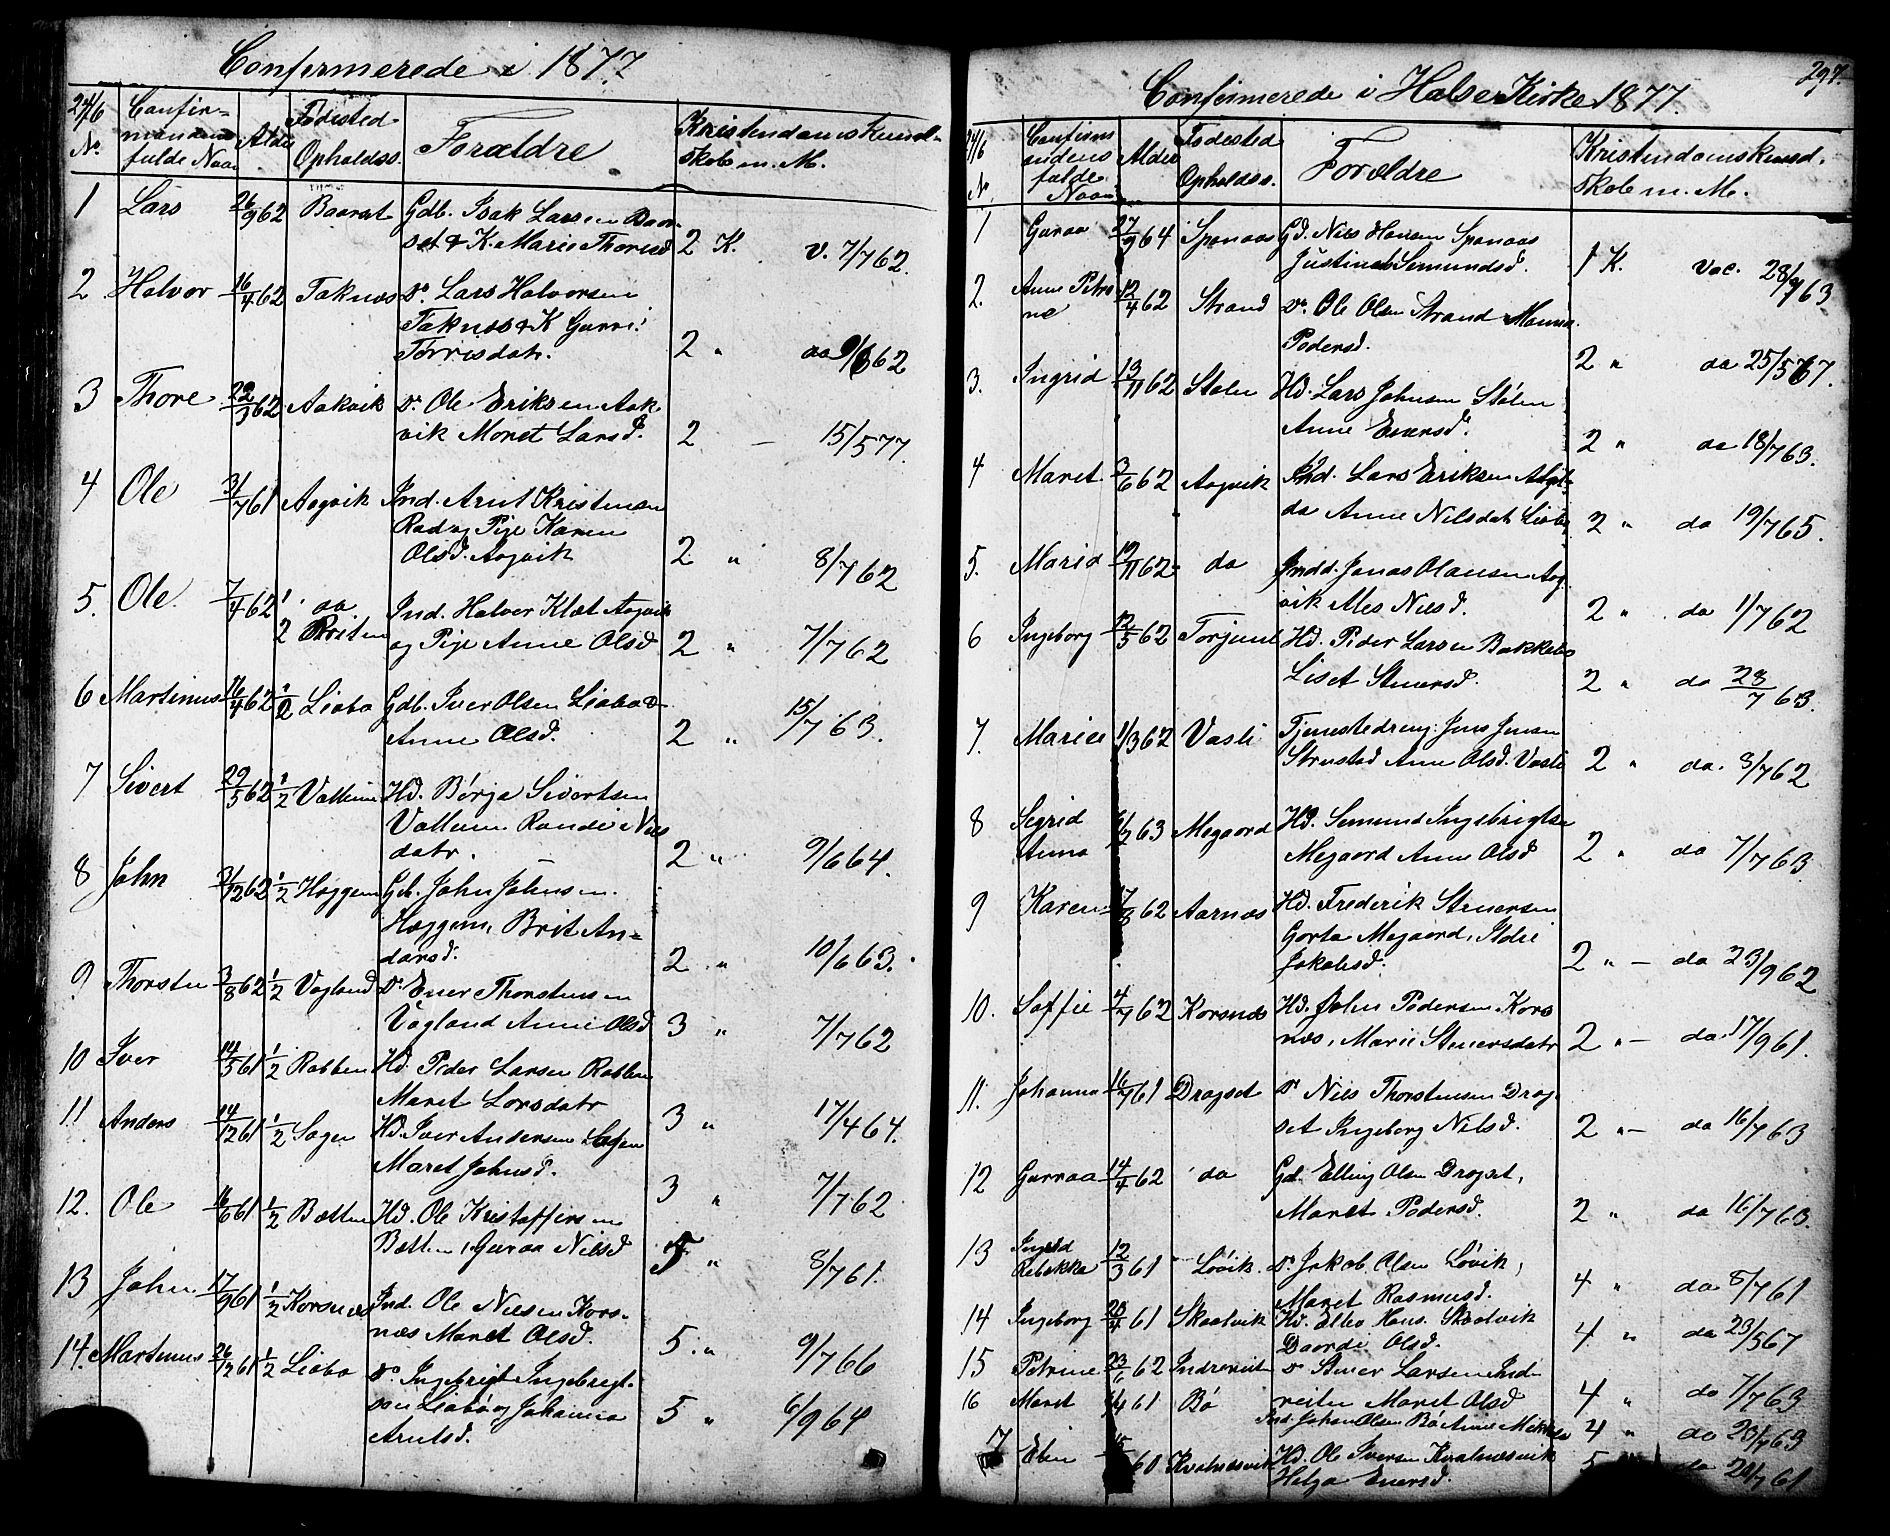 Confirmerede i 1877
24/6
No.
Confir-
mandens
fulde Navn
Alder
Fødested
Opholdss.
Forældre
Kristendomskund-
skab m. M.
1 Lars 26/9 62 Baarset Gdb. Isak Larsen Baar-
set & K. Marie Thoresd 2 K. v. 7/7 62.
2 Halvor 16/4 62 Taknes Do. Lars Halvorsen
Taknes & K Gurri
Torrisdatr. 2 " do 62
3 Thore 62 Aakvik Do. Ole Eriksen Aak
vik Maret Larsd. 2 15/5 77.
4 Ole 3/7 61 Aagvik Ind. Arnt Kristensen
Rad og Pige Karen
Olsd. Aagvik 2 " 8/7 62
5. Ole. 7/4 62 do Ind. Halvor Klæt Aagvik
og Pige Anne Olsd 2 " 7/7 62
6 Martinus 16/4 62 1/2 Liabø Gdb. Iver Olsen Liabø &
Anne Olsd. 2 " 15/7 63.
7 Sivert 29/5 62 1/2 Vullum Hd. Børge Sivertsen
Vullum Randi Nils
datr. 2 " 9/6 64.
8 John 3/12 62 1/2 Hæggem Gdb. John Johnsen
Hæggem, Brit An=
darsd. 2 " 10/6 63.
9 Thorsten 3/8 62 1/2 Vagland Do Ener Thorstensen
Vagland Anne Olsd 3 " 7/7 62
10 Iver 14/5 61 1/2 Rabben Hd. Peder Larsen Rabben
Maret Larsdatr 3 " 17/4 64.
11 Anders 14/12 61 1/2 Sagen Hd. Iver Andersen Sagen
Maret Johnsd. 3 " 7/7 62
12. Ole 16/6 61 1/2 Bætten Hd. Ole Kristoffersen
Bætten, Guraa Nilsd " 8/7 61.
13 John 17/9 61 1/2 Korsnæs Ind. Ole Nilsen Kors-
næs Maret Olsd. 5 " 9/7 66
14. Martinus 26/12 61 1/2 Liabø Do Ingebrigt Ingebrigt-
sen Liabø og Johanna
Arntsd. 5 " 6/9 64
297.
Confirmerede i Halse Kirke 1877.
24/6
No.
Confirm
andens
fulde
Navn
Alder
Fødested
Opholdss.
Forældre
Kristendomskund-
skab m. M.
1 Guraa 27/9 64 Spanaas Gd. Nils Hansen Spanaas
Justine Semundsd. 1 K. Vac. 28/7 63
2. Anne Petri
ne 12/4 62 Strand Do. Ole Olsen Strand
Pedersd. 2 " do 25/5 67.
3. Ingrid 13/11 62 Stølen Hd. Lars Johnsen Stølen
Anne Enersd. 2 " do 18/7 63.
4 Maret 3/6 62 Aagvik Ind. Lars Eriksen
Anne Nilsdatr 2 " do 19/7 65.
5. Maria 12/11 62 do Indd. Jonas Olausen Aag
vik Mes Nilsd. 2 " do 1/7 62
6 Ingeborg 12/5 62 Torjuul Hd. Peder Larsen Bakken
Liset Stenersd. 2 " do 28/7 63.
7. Marie 1/3 62 Vasli Tjenestedreng Jens Jensen
Strustad Anne Olsd. Vasli 2 " do. 8/7 62
8 Segrid
Anna 63 Megaard Hd. Semund Ingebrigtsen
Megaard Anne Olsd 2 " do 7/7 63
9 Karen 17/8 62 Aarnæs Hd. Frederik Stenersen
Megaard,
Jakobsd. 2 " do 23/9 62
10. Soffie 4/7 62 Korsnæs Hd. John Pedersen Kors
næs, Marie Stenersdatr 2 " do 17/9 61.
11. Johanna 16/7 61 Dragset Do Nils Thorstensen Drag
set Ingeborg Nilsd. 2 " do 16/7 63
12 Gurraa 14/4 62 do Gd. Elling Olsen Dragset,
Maret Pedersd. 2 " do 16/7 63.
13 Ingrid
Rebekka 12/3 61 Løvik Do. Jakob Olsen Løvik,
Maret Rasmusd. 4 " do 8/7 61
14 Ingeborg 61 Skaalvik Hd. Hans. Skaalvik
Olsd. 4 " do 23/5 67
15 Petrine 23/1 62 Indreeit Do Larsen Ind-
reiten Maret Olsd 4 " do 7/7 63
16 Maret 61 Bø Ind. Johan Olsen Bø Anne 4 " do 23/7 63
7 Elen 60 Kvalnesvik Hd. Ole Iversen Kvalnæsvik
Helga Enersd. 5 do 61